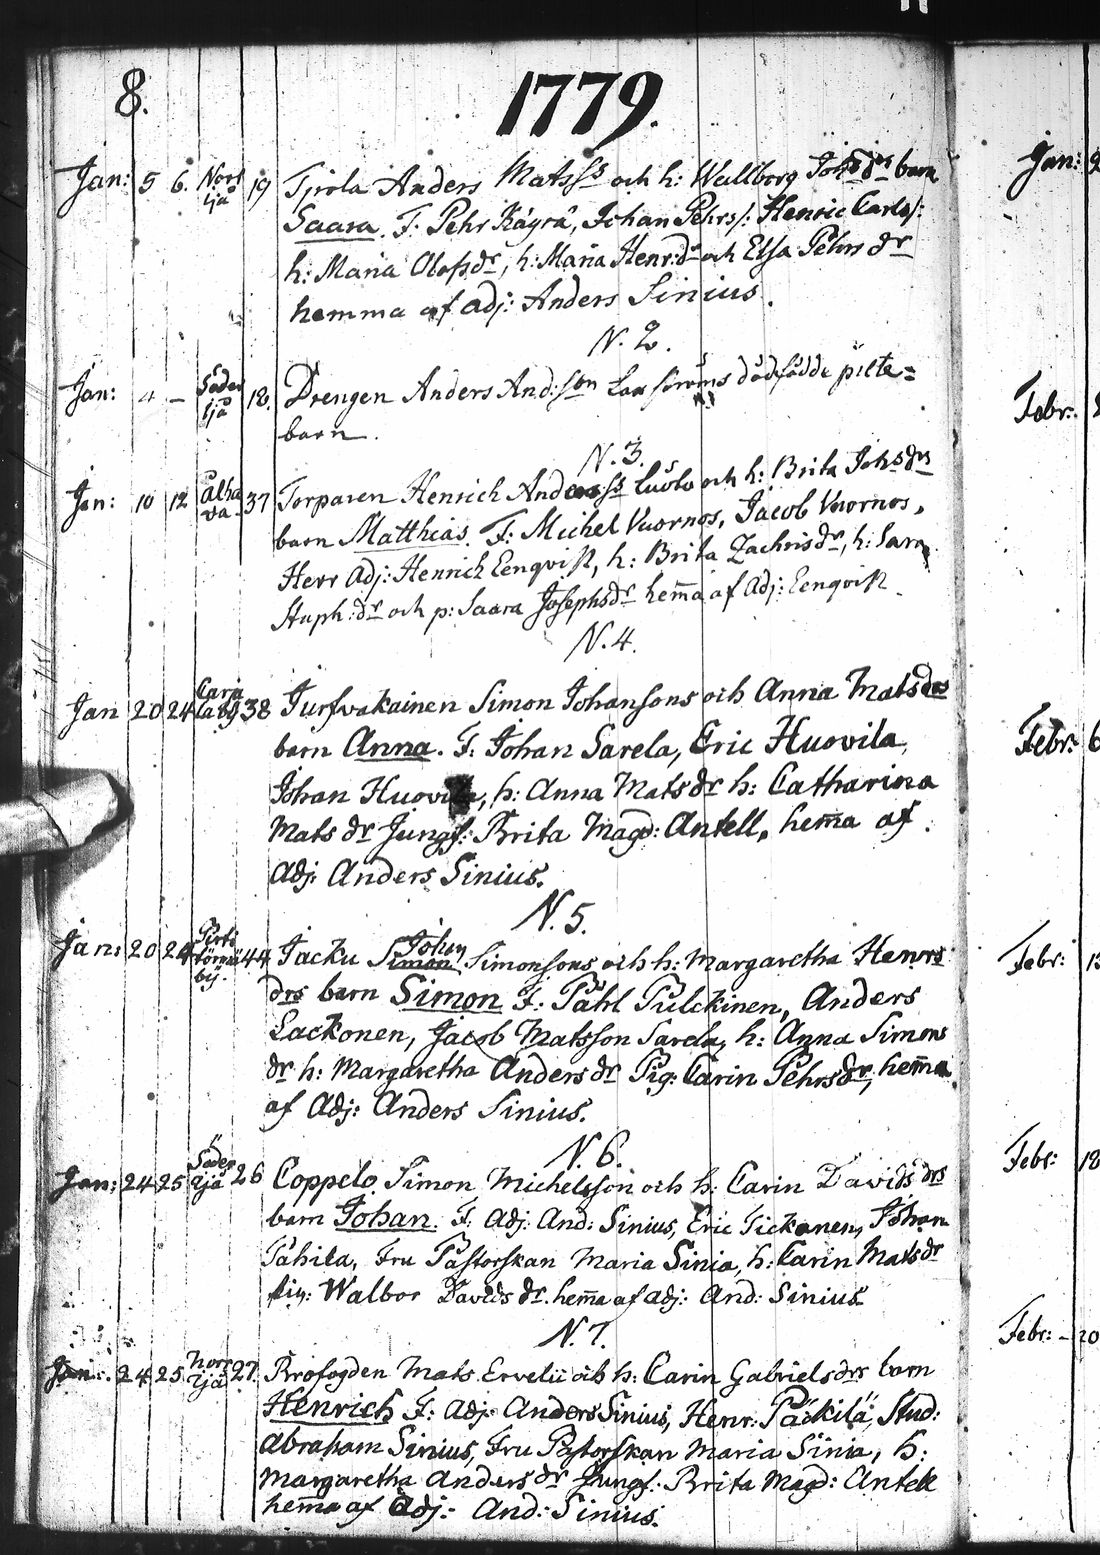 8.
1779.
Jan: 5 6. Norr ljå 19 Tjrola Anders Matsss och h: Wallborg Johsdrs barn
Saara. F: Pehr Kågrå, Johan Pehrs/: Henric Carls/:
h: Maria Olofsdr, h: Maria Henr:dr och Elsa Pehrs dr
hemma af adj: Anders Sinius.
N. 2.
Jan: 4 – Söder ljå 18. Drengen Anders And:son dödfödde pilte=
barn.
N. 3.
Jan: 10 12 alha va. 37 Torparen Henrich Anderss och h: Brita Johsdrs
barn Matthias. F: Michel Vuornos, Jacob Vuornos,
Herr Adj: Henrich Eenqvist, h: Brita Zachrisdr, h: Sara
Staph:dr och p: Saara Josephsdr hem̄a af Adj: Eenqvist.
N. 4.
Jan 20 24 Carja la by 38 Jurfvakainen Simon Johansons och Anna Matsdrs
barn Anna. F: Johan Sarela, Eric Huovila,
Johan Huovila, h: Anna Mats dr h: Catharina
Mats dr Jungf: Brita Magd: Antell, hem̄a af
Adj: Anders Sinius.
N. 5.
Jan: 20 24 törmä bÿ. 44 Jacku Simon Johan Simonsons och h: Margaretha Henrs
drs barn Simon F: Påhl Pulckinen, Anders
Lackonen, Jacob Matsson Sarela, h: Anna Simons
dr h: Margaretha Anders dr Pig: Carin Pehrsdr, hem̄a
af Adj: Anders Sinius.
N. 6.
Jan: 24 25 Söder ljå 26 Coppelo Simon Michelsson och h: Carin Davids drs
barn Johan. F: Adj: And: Sinius, Eric Tickanen, Johan
Tähilä, Fru Pastorskan Maria Sinia, h: Carin Mats dr
pig: Walbor Davids dr. hem̄a af adj: And: Sinius.
N. 7.
Jan: 24 25 Norr ljå 27. Brofogden Mats Ervelii och h: Carin Gabrielsdrs barn
Henrich F: Adj: Anders Sinius, Henr: Päckilä, Stud:
Abraham Sinius, Fru Pastorskan Maria Sinia, h:
Margaretha Anders dr Jungf: Brita Magd: Antell
hem̄a af Adj: And: Sinius.
Jan:
Febr:
Febr: 6
Febr: 13
Febr: 18
Febr: – 20